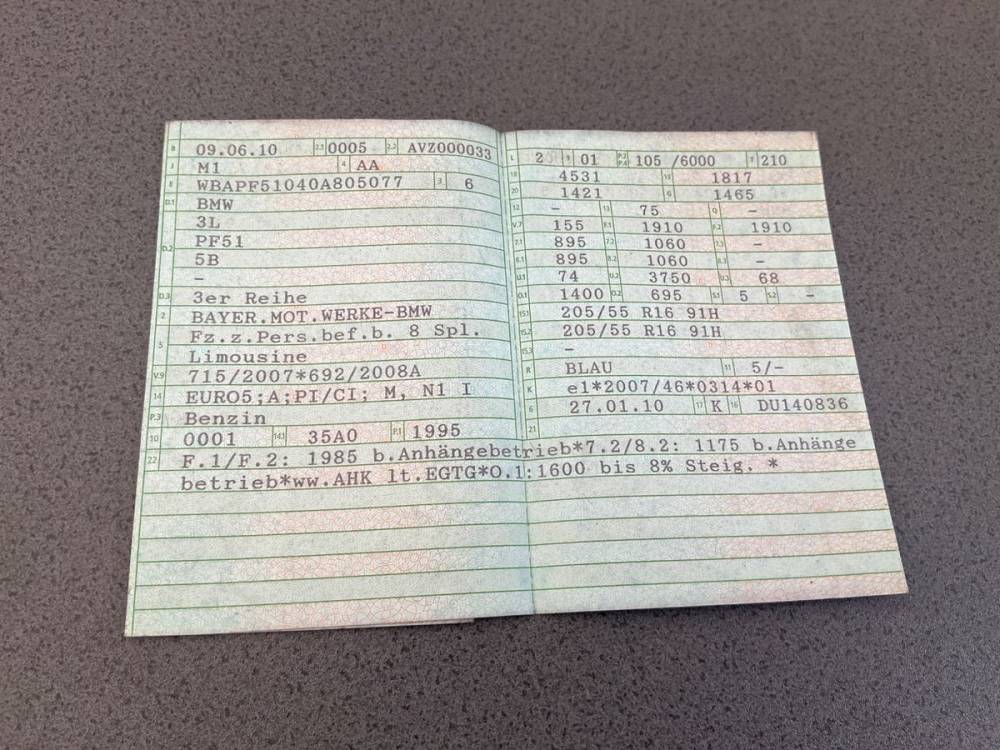 B 09.06.10 2.1 0005 2.2 AVZ000033
J M1 4 AA
E WBAPF51040A805077 3 6
D.1 BMW
D.2 3L
PF51
5B
–
D.3 3er Reihe
2 BAYER.MOT.WERKE-BMW
5 Fz.z.Pers.bef.b. 8 Spl.
Limousine
V.9 715/2007*692/2008A
14 EURO5;A;PI/CI; M, N1 I
P.3 Benzin
10 0001 14.1 35A0 P.1 1995
L 2 9 01 P.2 P.4 105 /6000 T 210
18 4531 19 1817
20 1421 G 1465
12 – 13 75 Q –
V.7 155 F.1 1910 F.2 1910
7.1 895 7.2 1060 7.3 –
8.1 895 8.2 1060 8.3 –
U.1 74 U.2 3750 U.3 68
O.1 1400 O.2 695 S.1 5 S.2 –
15.1 205/55 R16 91H
15.2 205/55 R16 91H
15.3 –
R BLAU 11 5/–
K e1*2007/46*0314*01
6 27.01.10 17 K 16 DU140836
21
22 F.1/F.2: 1985 b.Anhängebetrieb*7.2/8.2: 1175 b.Anhänge
betrieb*ww.AHK lt.EGTG*O.1:1600 bis 8% Steig. *